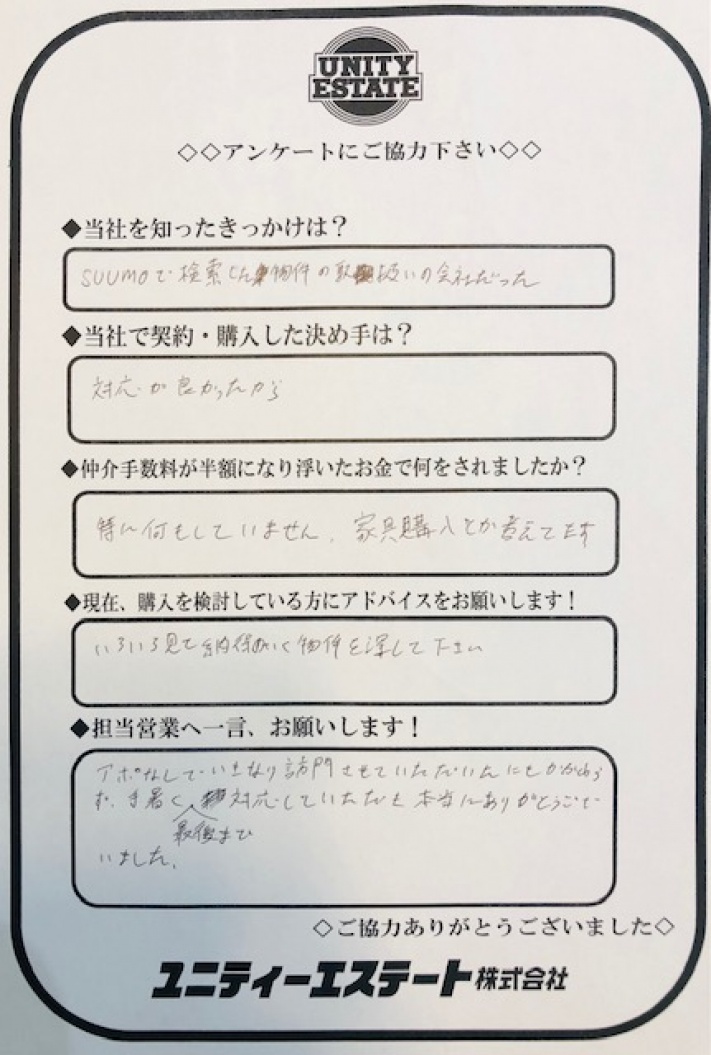 UNITY
ESTATE
◇◇アンケートにご協力下さい◇◇
◆当社を知ったきっかけは？
SUUMOで検索した物件の取扱いの会社だった
◆当社で契約・購入した決め手は？
対応が良かったから
◆仲介手数料が半額になり浮いたお金で何をされましたか？
特に何もしていません。家具購入とか考えてます
◆現在、購入を検討している方にアドバイスをお願いします！
いろいろ見て納得いく物件を探して下さい
◆担当営業へ一言、お願いします！
アポなしでいきなり訪問させていただいたにもかかわら
ず、手暑く対応していただき本当にありがとうござ
最後まで
いました。
◇ご協力ありがとうございました◇
ユニティーエステート株式会社